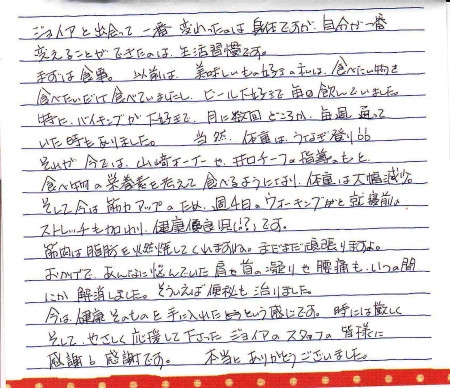 ジョイアと出会って一番変わったのは身体ですが、自分が一番
変えることができたのは、生活習慣です。
まずは食事。以前は、美味しいもの好きの私は、食べたい物を
食べたいだけ食べていましたし、ビール大好きで毎日飲んでいました。
特に、バイキングが大好きで、月に数回どころか、毎週通って
いた時もありました。 当然、体重はうなぎ登り
それが今では、山崎オーナーや、井口チーフの指導のもと、
食べ物の栄養素を考えて食べるようになり、体重は大幅減少
そして今は筋力アップのため、週4日のウォーキングがと就寝前の
ストレッチも加わり、健康優良児(!?)です。
筋肉は脂肪を燃焼してくれますよね。まだまだ頑張りますよ。
おかげで、あんなに悩んでいた肩や首の凝りや腰痛も、いつの間
にか解消しました。そういえば便秘も治りました。
今は健康そのものを手に入れたという感じです。時には厳しく
そして、やさしく応援して下さったジョイアのスタッフの皆様に
感謝も感謝です。 本当にありがとうございました。